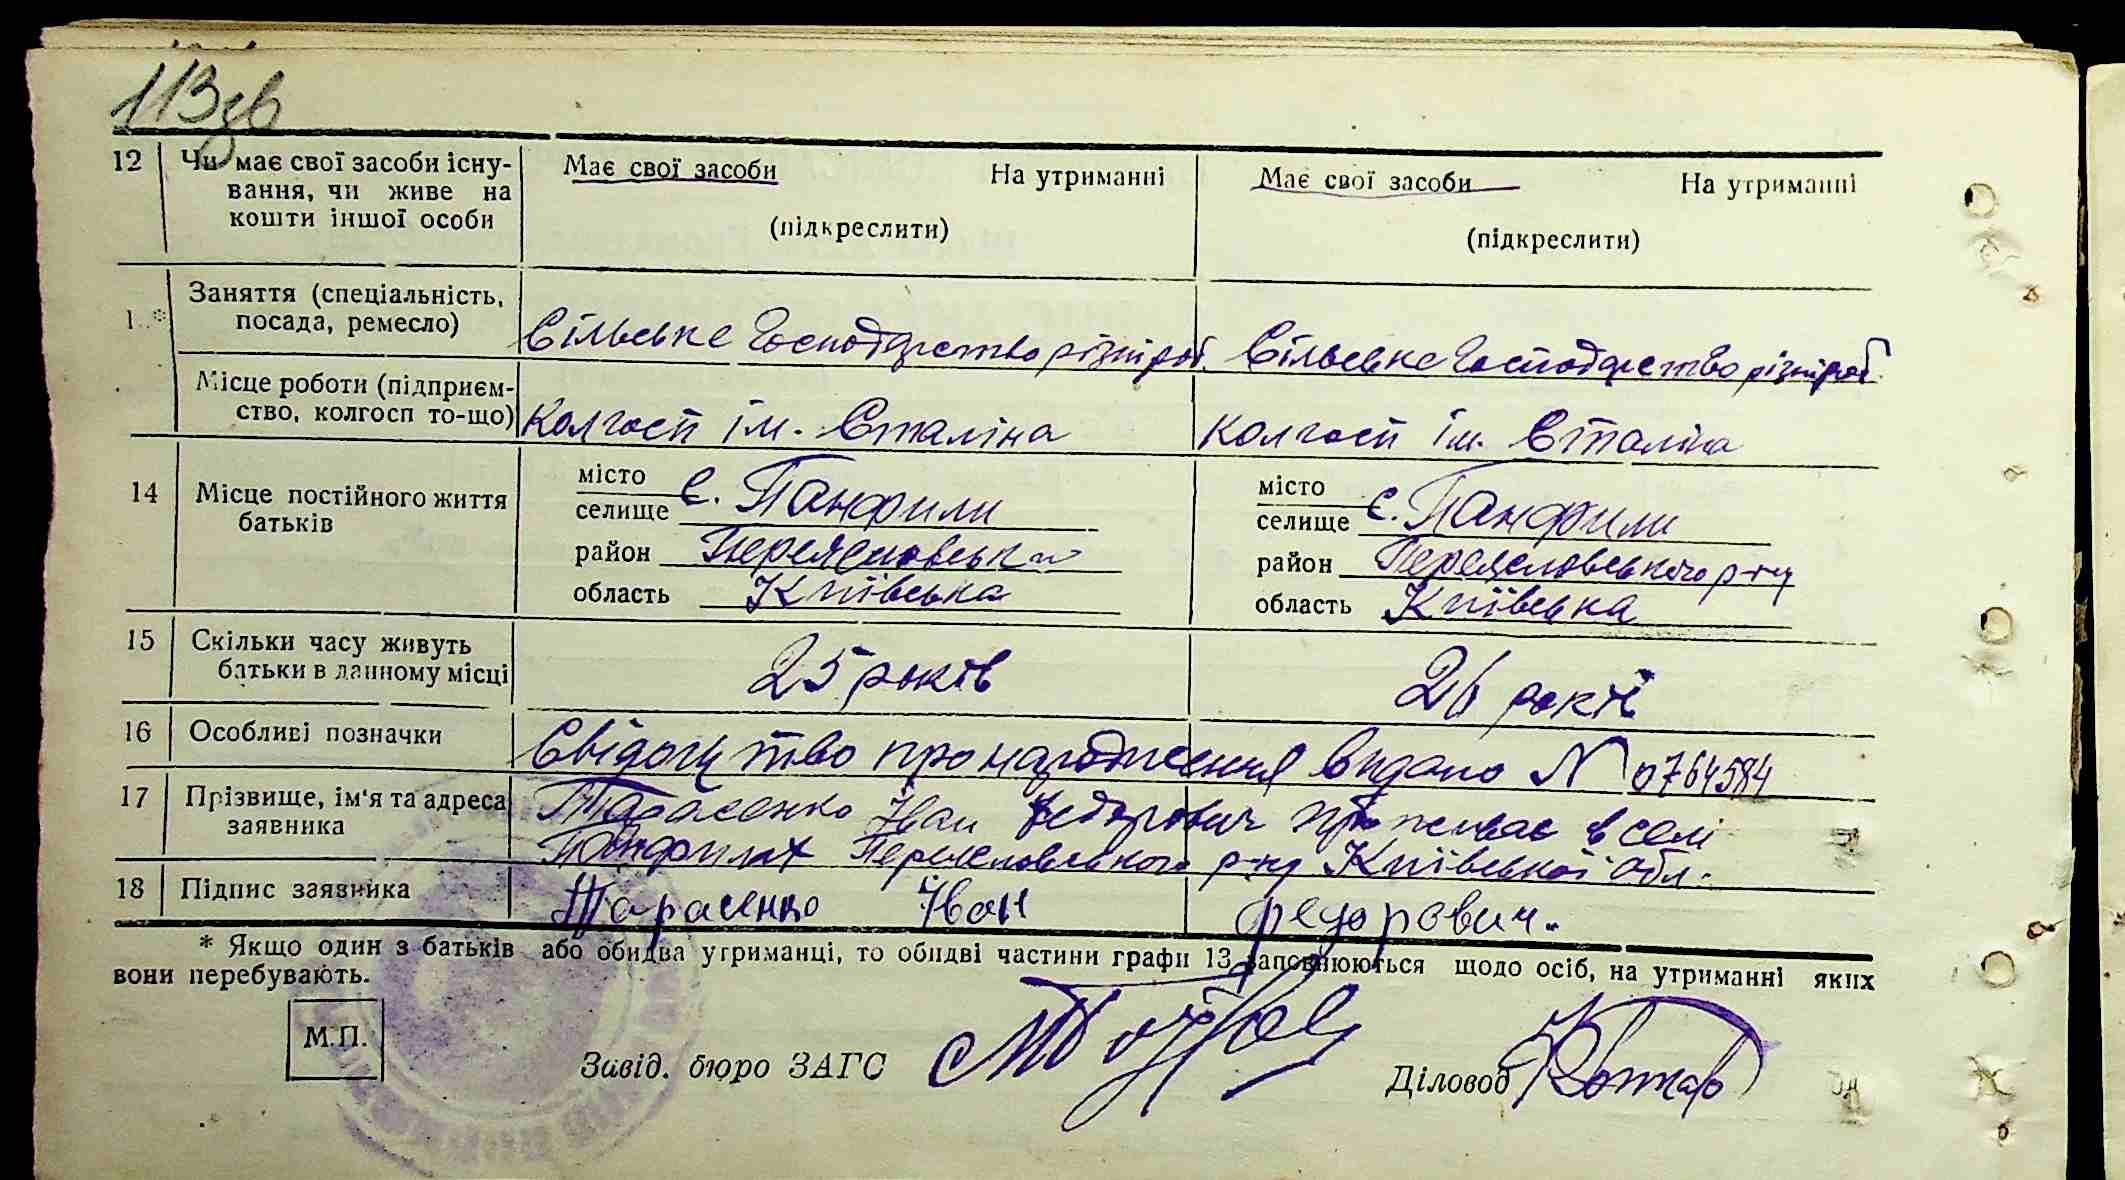 113зв
12 Чи має свої засоби існу-
вання, чи живе на
кошти іншої особи
Має свої засоби На утриманні
(підкреслити)
Має свої засоби На утриманні
(підкреслити)
1 * Заняття (спеціальність,
посада, ремесло)
Сільське Господарство різнроб.
Сільське Господарство різнроб.
Місце роботи (підприєм-
ство, колгосп то-що)
Колгосп ім. Сталіна
Колгосп ім. Сталіна
14 Місце постійного життя
батьків
місто
селище с. Панфили
район Переясловськи
область Київська
місто
селище с. Панфили
район Переясловського р-ну
область Київська
15 Скільки часу живуть
батьки в данному місці
25 років
26 років
16 Особливі позначки
Свідоцтво про народження видано N 0764584
17 Прізвище, ім'я та адреса
заявника
Тарасенко Іван Федорович проживає в селі
Панфилах Переясловського р-ну Київської обл.
18 Підпис заявника
Тарасенко Іван Федорович.
* Якщо один з батьків або обидва утриманці, то обидві частини графи 13 заповнюються щодо осіб, на утриманні яких
вони перебувають.
М.П.
Завід. бюро ЗАГС
Діловод